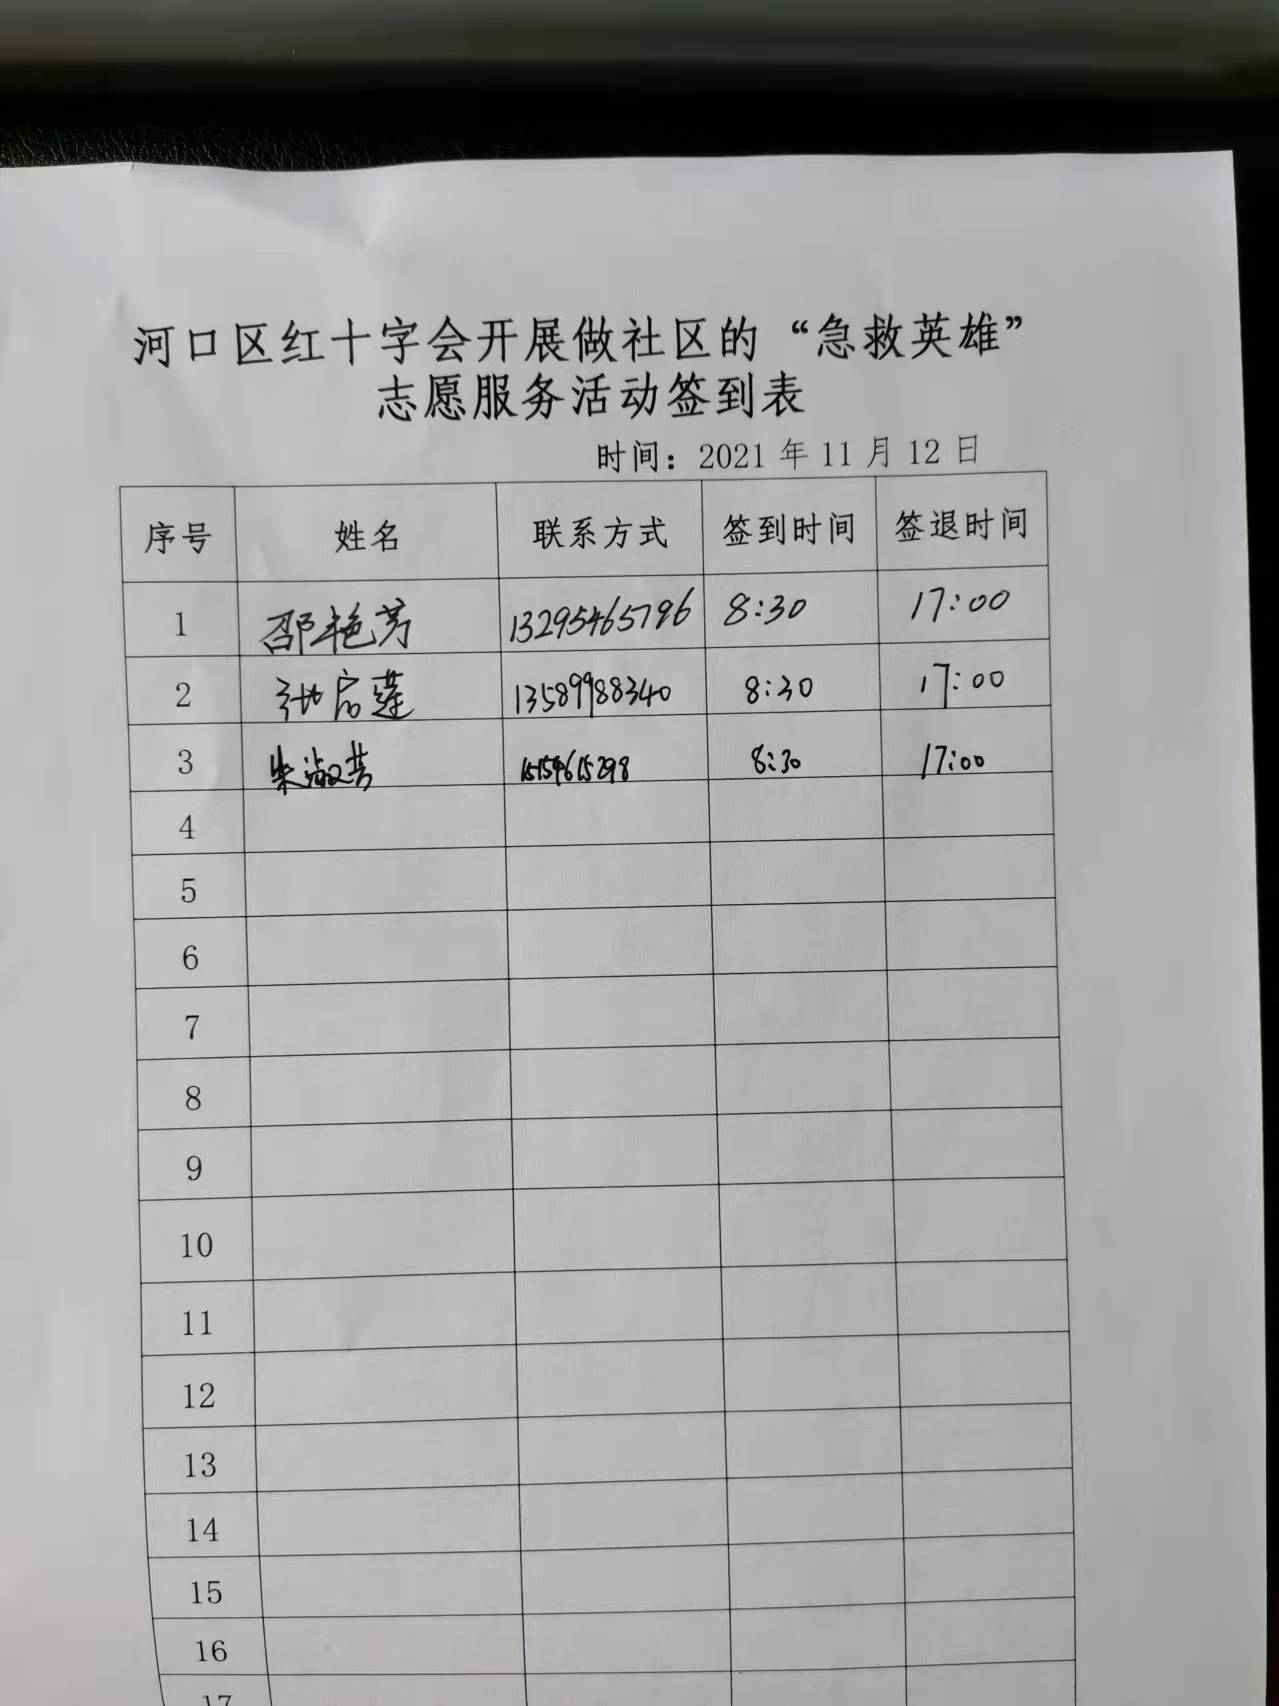 河口区红十字会开展做社区的“急救英雄”
志愿服务活动签到表
时间：2021 年 11 月 12 日
序号 姓名 联系方式 签到时间 签退时间
1 邵艳芳 13295465796 8:30 17:00
2 13589988340 8:30 17:00
3 8:30 17:00
4
5
6
7
8
9
10
11
12
13
14
15
16
17